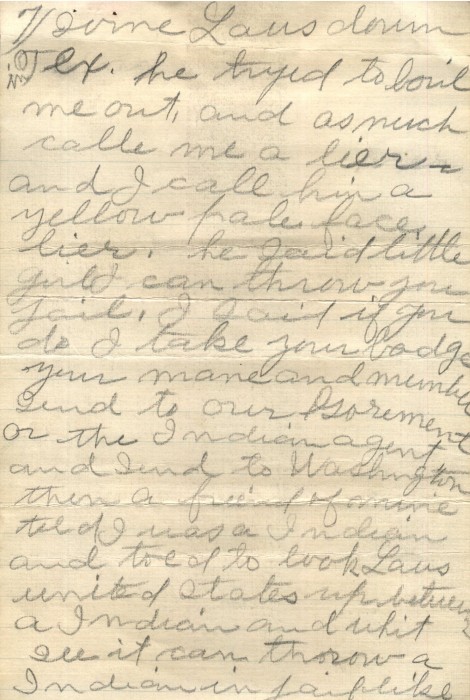 Divine Laus down
in Tex. he tryed to boil
me out, and as much
calle me a lier -
and I call him a
yellow pale face,
lier, he said little
girl I can throw you
jail, I said if you
do I take your badge
your mane and number
send to our Gorement
or the Indian agent
and send to Washington
then a friend of mine
told I was a Indian
and told to look Laus
united States up between
a Indian and whit
see it can thorow a
Indian in jail like